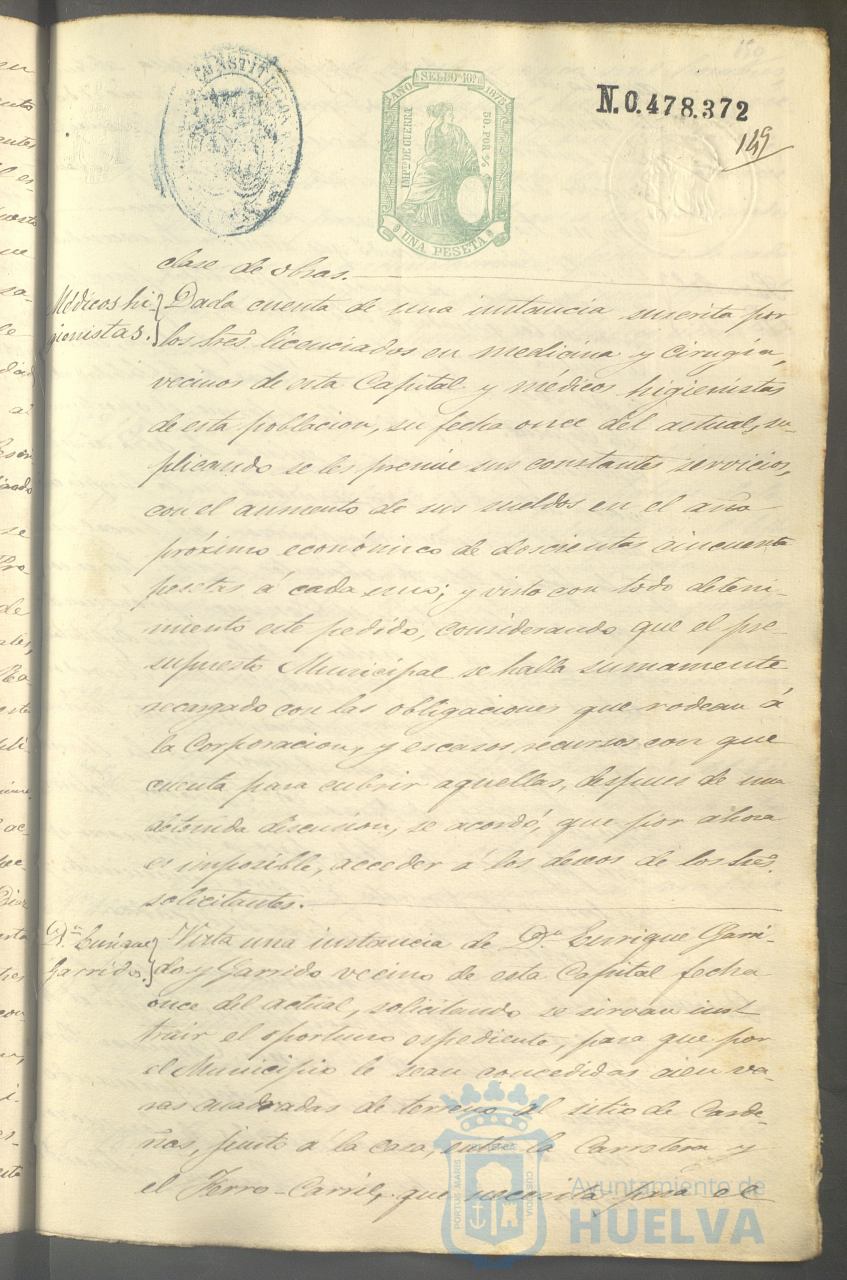 150
CONSTITUCION
AÑO SELLO 10º 1875
IMPTO DE GUERRA
50 POR %
UNA PESETA
N. 0.478.372
149
clase de obras.
Médicos hi-
gienistas.
Dada cuenta de una instancia suscrita por
los tres licenciados en medicina y cirugia,
vecinos de esta Capital y médicos higienistas
de esta poblacion, su fecha once del actual, su-
plicando se les premie sus constantes servicios,
con el aumento de sus sueldos en el año
próximo económico de doscientas cincuenta
pesetas á cada uno; y visto con todo deteni-
miento este pedido, considerando que el pre-
supuesto Municipal se halla sumamente
recargado con las obligaciones que rodean á
la Corporacion, y escasos recursos con que
cuenta para cubrir aquellas, despues de una
detenida discusion, se acordó, que por ahora
es imposible, acceder á los deseos de los Sres.
solicitantes.
Dn. Enrique
Garrido.
Vista una instancia de Dn. Enrique Garri-
do y Garrido vecino de esta Capital fecha
once del actual, solicitando se sirvan inst
truir el oportuno espediente, para que por
el Municipio le sean concedidas cien va-
ras cuadradas de terreno al sitio de Carde-
ñas, junto á la casa, entre la Carretera y
el Ferro-Carril, que necesita para el
PORTUS MARIS
CUSTODIA
Ayuntamiento de
HUELVA